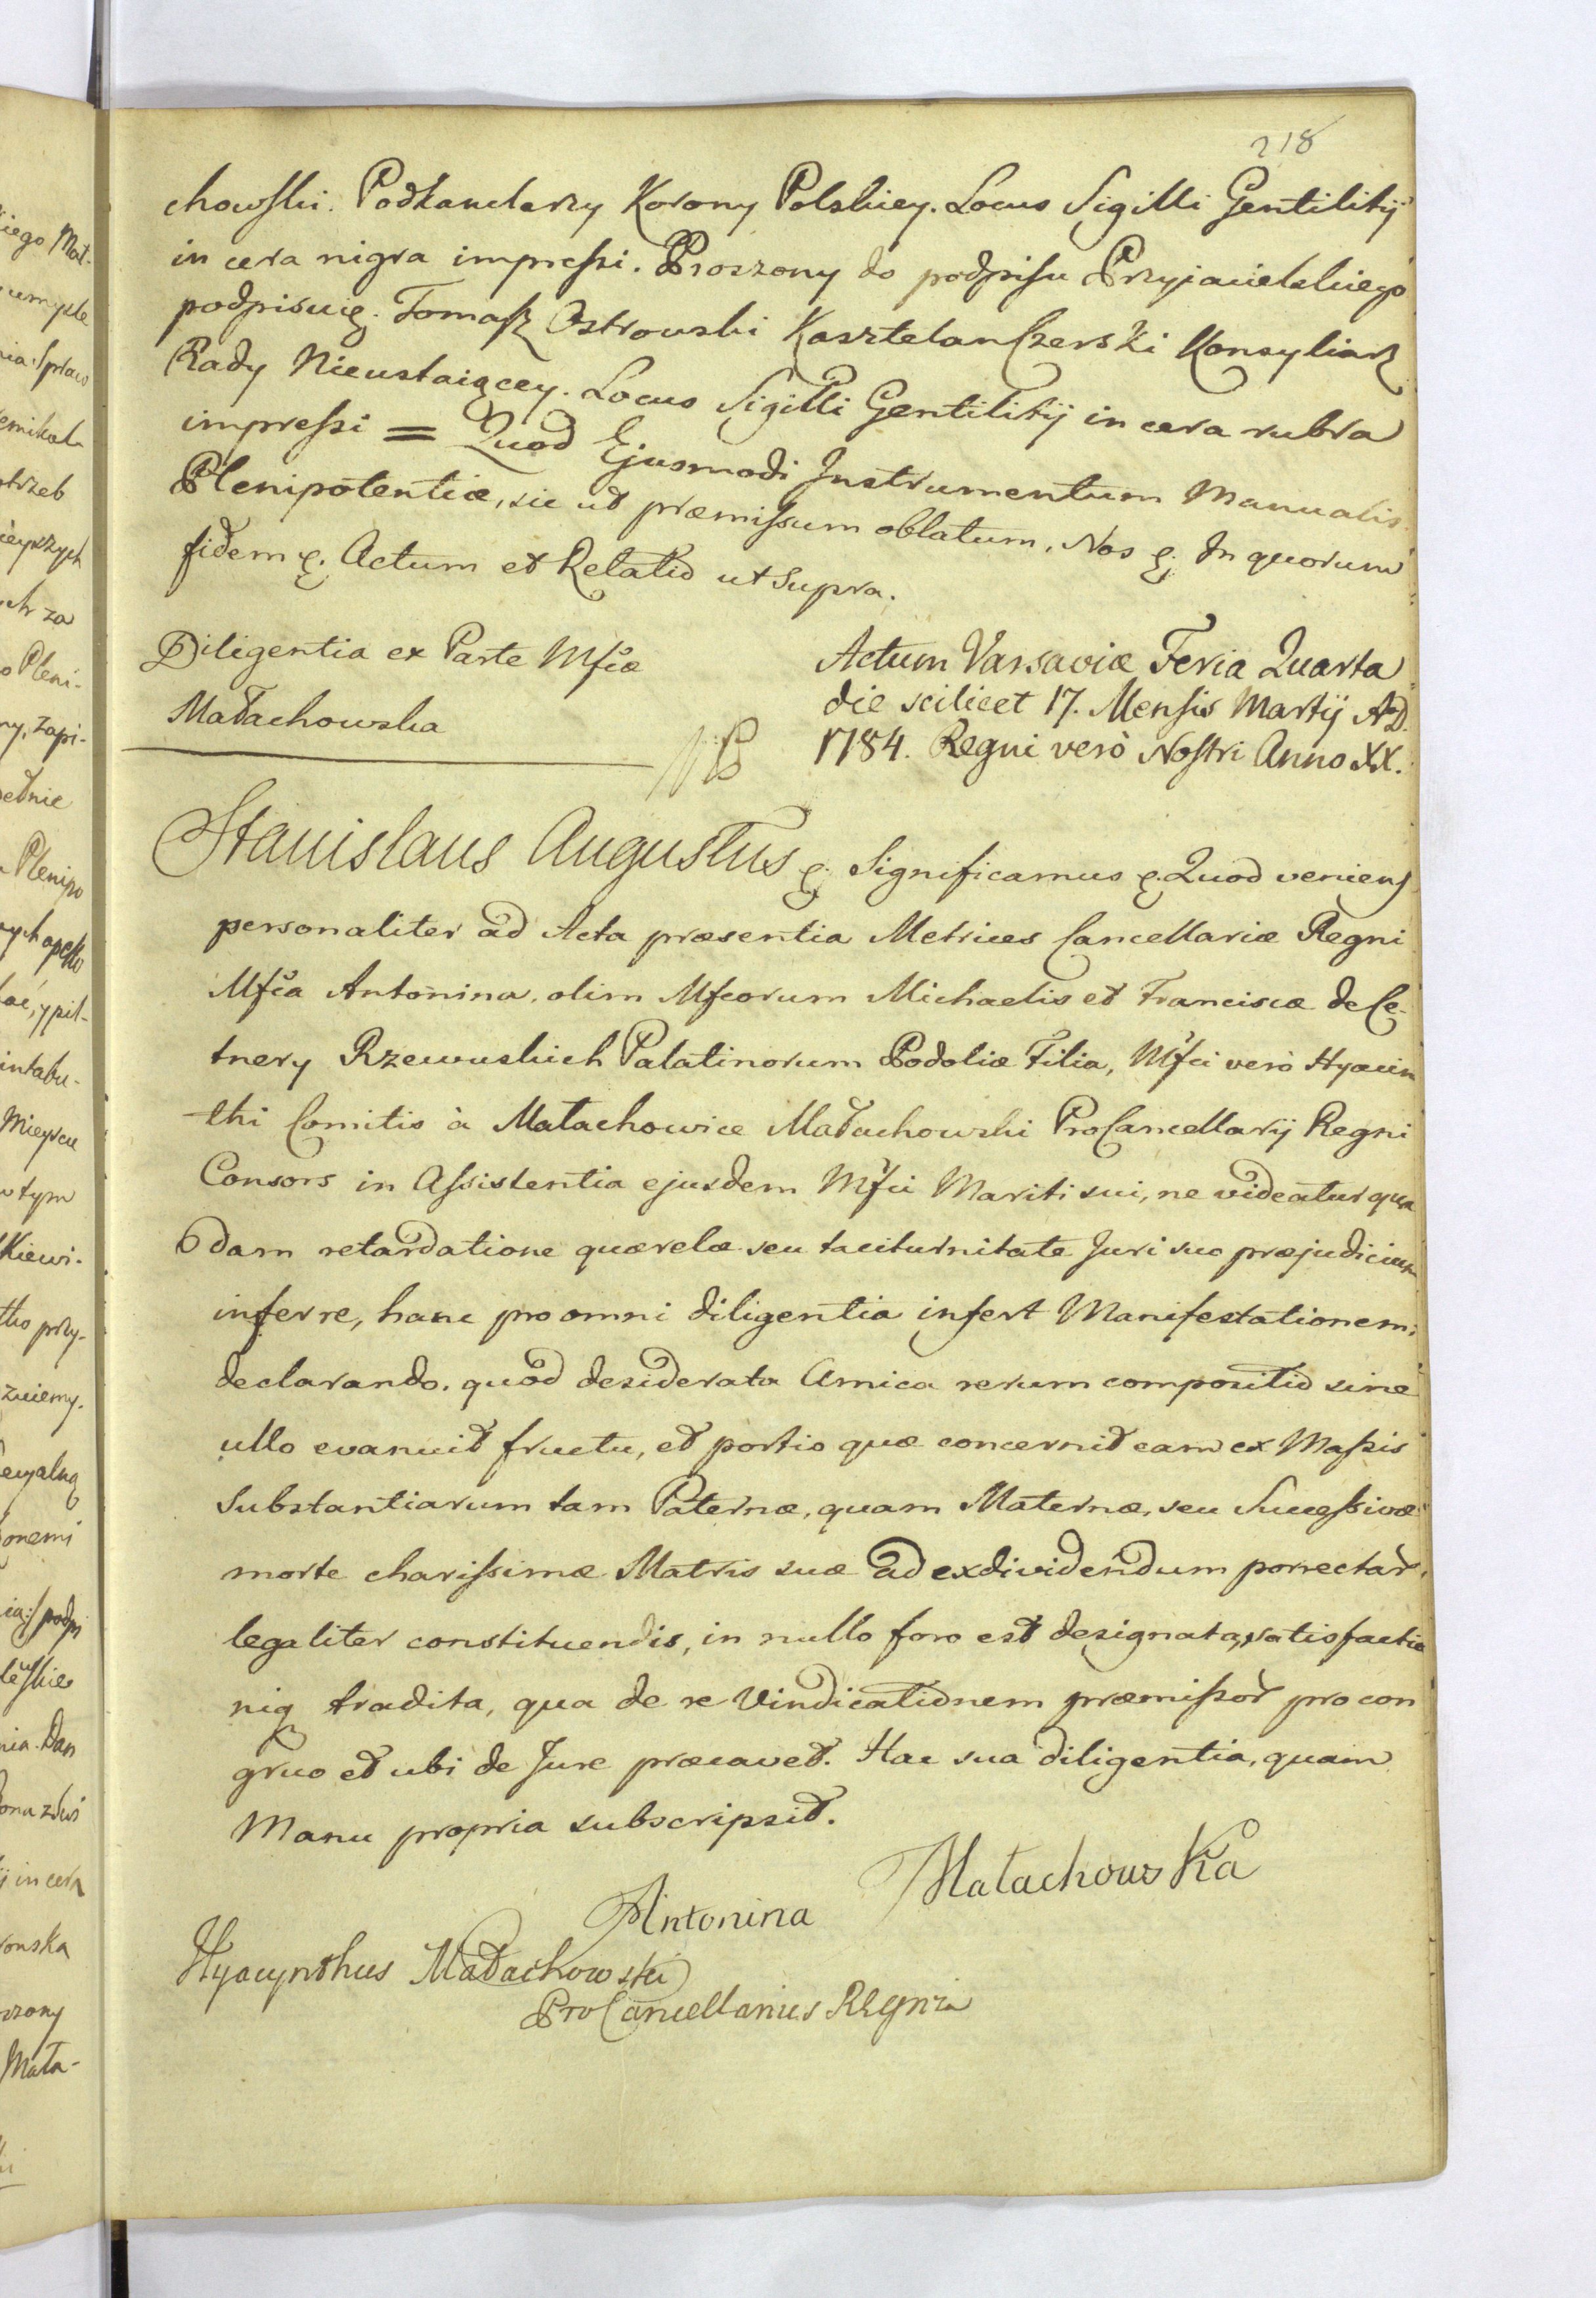 218
chowski. Podkanclerzy Korony Polskiey. Locus Sigilli Gentilitij
in cera nigra impressi. Proszony do podpisu Przyjacielskiego
podpisuię. Tomasz Ostrowski Kasztelan Czerski Konsyliarz
Rady Nieustaiącey. Locus Sigilli Gentilitij in cera rubra
impressi = Quod Ejusmodi Instrumentum Manualis
Plenipotentiæ, sic ut præmissum oblatum, Nos &. In quorum
fidem &. Actum et Relatio ut supra.
Diligentia ex Parte Mfcæ
Małachowska
NB
Actum Varsaviæ Feria Quarta
die scilicet 17. Mensis Martij A.D.
1784. Regni verò Nostri Anno XX.
Stanislaus Augustus &. Significamus &. Quod veniens
personaliter ad Acta præsentia Metrices Cancellariæ Regni
Mfca Antonina, olim Mfcorum Michaelis et Franciscæ de Ce-
tnery Rzewuskich Palatinorum Podoliæ Filia, Mfci verò Hyacin
thi Comitis à Małachowice Małachowski ProCancellarij Regni
Consors in Assistentia ejusdem Mfci Mariti sui, ne videatur qua
dam retardatione quærelæ seu taciturnitate Juri suo præjudicium
inferre, hanc pro omni diligentia infert Manifestationem,
declarando, quod desiderata Amica rerum compositio sine
ullo evanuit fructu, et portio quæ concernit eam ex Massis
Substantiarum tam Paternæ, quam Maternæ, seu Successivæ
morte charissimæ Matris suæ ad exdividendum porrectar.
legaliter constituendis, in nullo foro est designata, satisfactio
niq tradita, qua de re Vindicationem præmissor pro con
gruo et ubi de Jure præcavet. Hac sua diligentia, quam
Manu propria subscripsit.
Antonina Małachowska
Hyacynthus Małachowski
ProCancellarius Regni